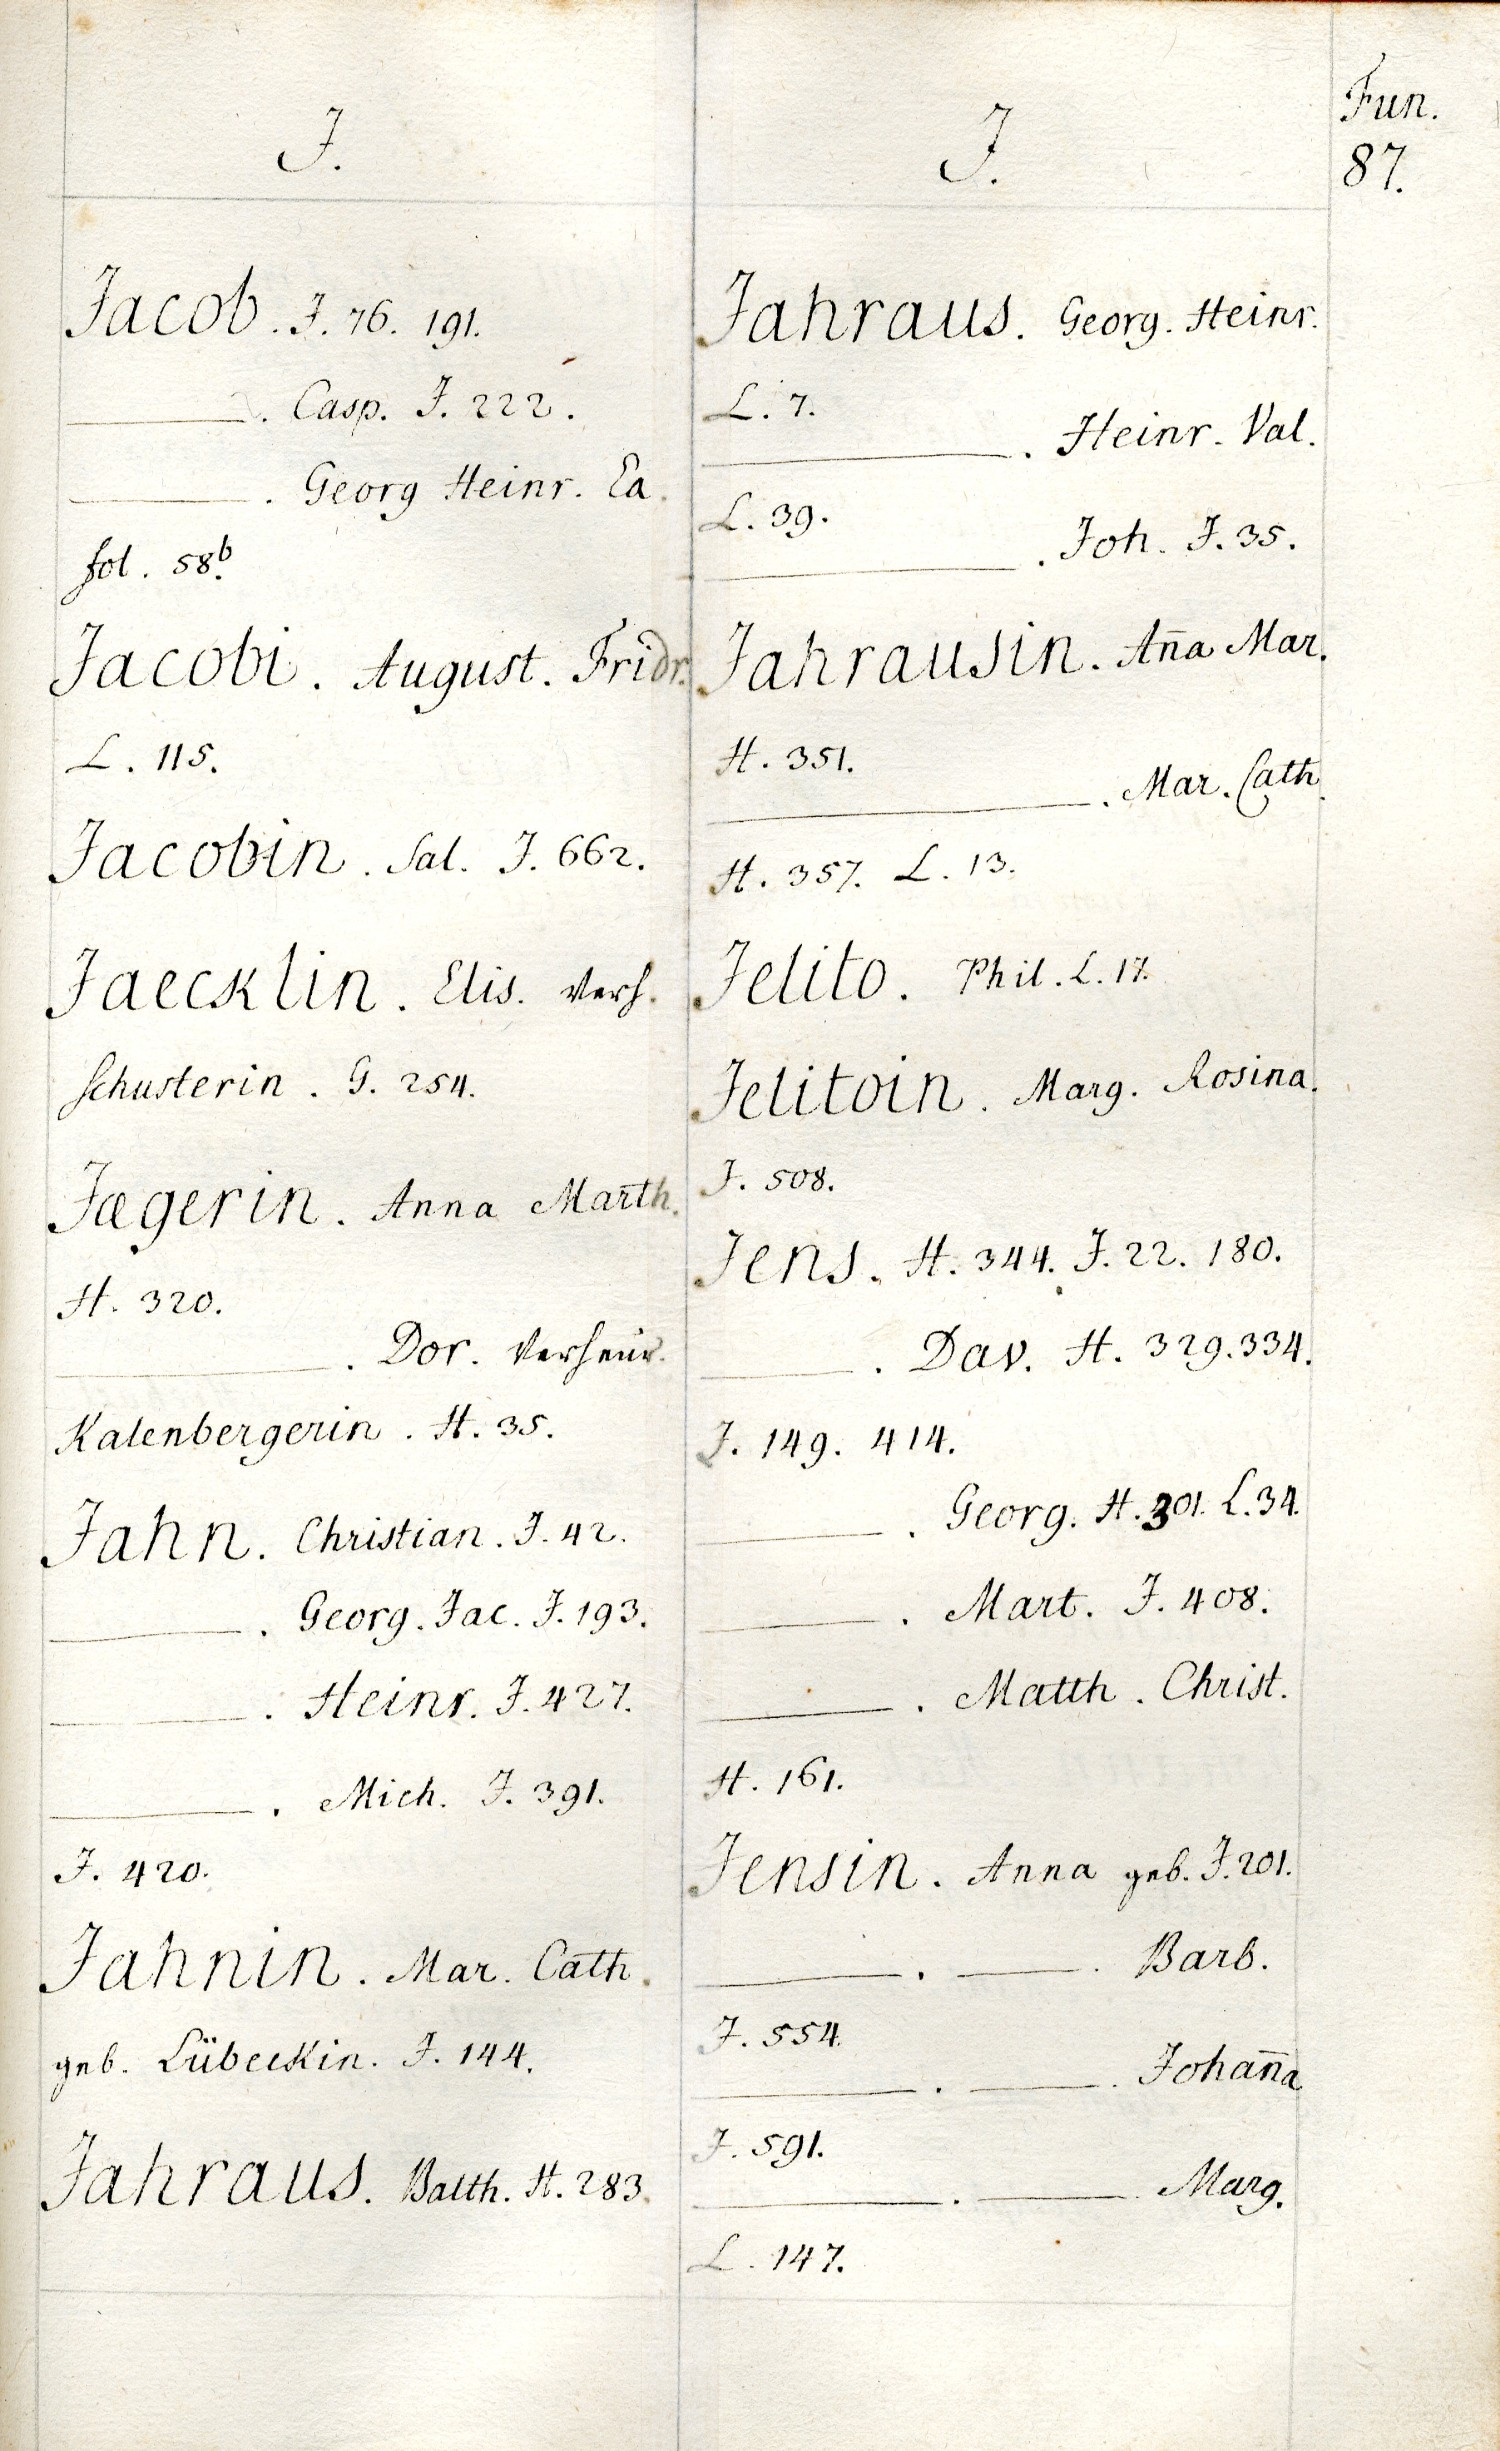 Fun.
87.
J.
Jacob. J. 76. 191.
———. Casp. J. 222.
———. Georg Heinr. Ea.
fol. 58b.
Jacobi. August. Fridr.
L. 115.
Jacobin. Sal. J. 662.
Jaecklin. Elis. verh.
Schusterin. G. 254.
Jægerin. Anna Marth.
H. 320.
———. Dor. verheur.
Kalenbergerin. H. 35.
Jahn. Christian. J. 42.
———. Georg. Jac. J. 193.
———. Heinr. J. 427.
———. Mich. J. 391.
J. 420.
Jahnin. Mar. Cath.
geb. Lübeckin. J. 144.
Jahraus. Balth. H. 283.
J.
Jahraus. Georg. Heinr.
L. 7.
———. Heinr. Val.
L. 39.
———. Joh. J. 35.
Jahrausin. Aña Mar.
H. 351.
———. Mar. Cath.
H. 357. L. 13.
Jelito. Phil. L. 17.
Jelitoin. Marg. Rosina.
J. 508.
Jens. H. 344. J. 22. 180.
———. Dav. H. 329. 334.
J. 149. 414.
———. Georg. H. 301. L. 34.
———. Mart. J. 408.
———. Matth. Christ.
H. 161.
Jensin. Anna geb. J. 201.
———. ———. Barb.
J. 554.
———. ———. Johaña
J. 591.
———. ———. Marg.
L. 147.